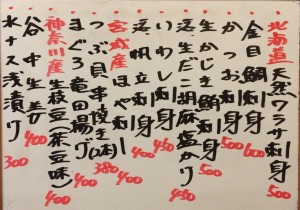 北海道 天然ワラサ刺身 500
金目鯛刺身 600
かつお刺身 500
生かじき鮪刺身 500
活生だこ胡麻塩かり 450
いわし刺身 450
活帆立刺身 450
宮城産 ほや刺 400
つぶ貝串焼き(2本) 380
まぐろ竜田揚げ 400
神奈川産 生枝豆(茶豆味) 400
谷中生姜 400
水ナス浅漬け 300